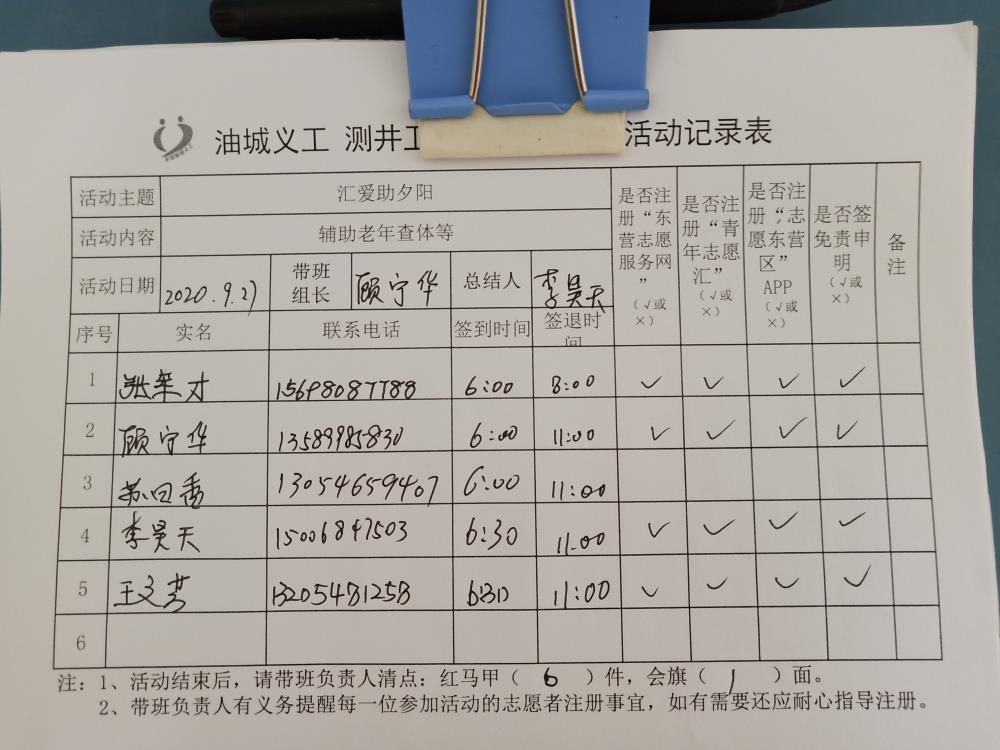 油城义工 测井 活动记录表
活动主题 汇爱助夕阳
活动内容 辅助老年查体等
活动日期 2020.9.27 带班组长 顾守华 总结人 李昊天
是否注册“东营志愿服务网”（√或×） 是否注册“青年志愿汇”（√或×） 是否注册“志愿东营区”APP（√或×） 是否签免责申明（√或×） 备注
序号 实名 联系电话 签到时间 签退时间
1 张荣才 15698087788 6:00 8:00 ✓ ✓ ✓ ✓
2 顾守华 13589985830 6:00 11:00 ✓ ✓ ✓ ✓
3 苏曰香 13054659407 6:00 11:00
4 李昊天 15006847503 6:30 11:00 ✓ ✓ ✓ ✓
5 王文芳 13205481258 6:30 11:00 ✓ ✓ ✓ ✓
6
注：1、活动结束后，请带班负责人清点：红马甲（ 6 ）件，会旗（ 1 ）面。
2、带班负责人有义务提醒每一位参加活动的志愿者注册事宜，如有需要还应耐心指导注册。